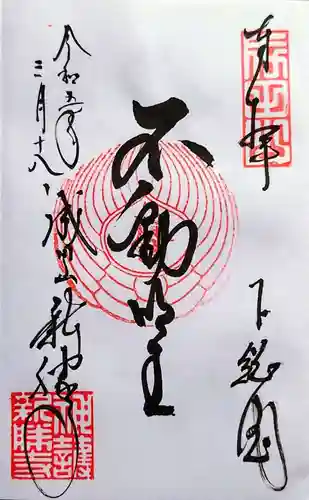 奉拝
下総国
不動明王
成田山新勝寺
令和五年
三月十八日
成田山